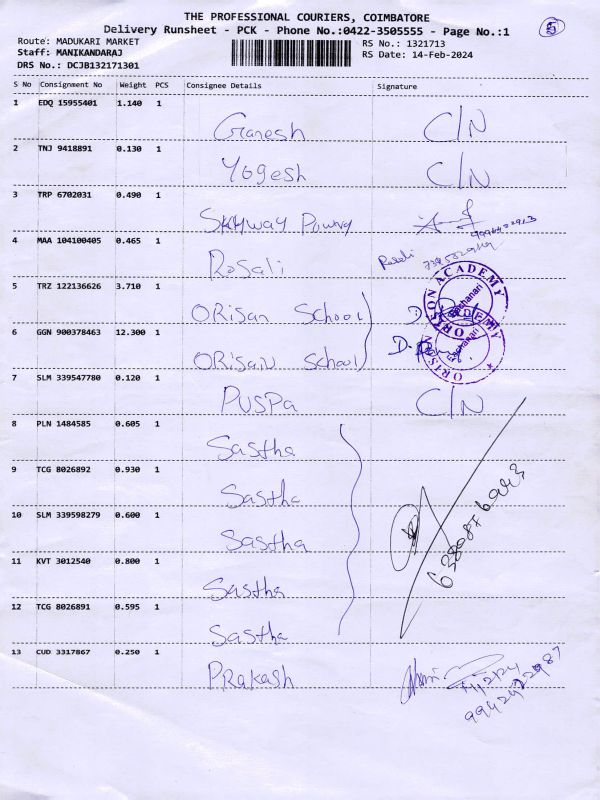 THE PROFESSIONAL COURIERS, COIMBATORE
Delivery Runsheet - PCK - Phone No.:0422-3505555 - Page No.:1
5
Route: MADUKARI MARKET
RS No.: 1321713
Staff: MANIKANDARAJ
RS Date: 14-Feb-2024
DRS No.: DCJB132171301
S No Consignment No Weight PCS Consignee Details Signature
1 EDQ 15955401 1.140 1 Ganesh C/N
2 TNJ 9418891 0.130 1 Yogesh C/N
3 TRP 6702031 0.490 1
4 MAA 104100405 0.465 1 Rosali
5 TRZ 122136626 3.710 1 ORisan School
ORISON ACADEMY
6 GGN 900378463 12.300 1 ORisan School
ORISON ACADEMY
7 SLM 339547780 0.120 1 PUSPA C/N
8 PLN 1484585 0.605 1 Sastha
9 TCG 8026892 0.930 1 Sastha
10 SLM 339598279 0.600 1 Sastha
11 KVT 3012540 0.800 1 Sastha
12 TCG 8026891 0.595 1 Sastha
13 CUD 3317867 0.250 1 PRakash